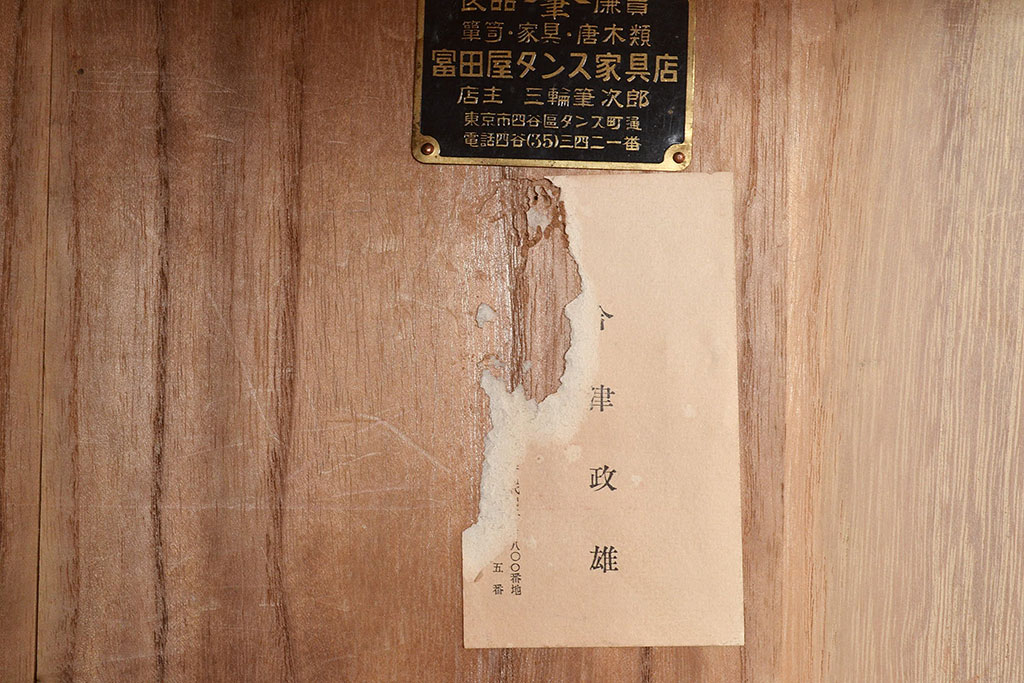 良品-筆-廉買
簞笥・家具・唐木類
冨田屋タンス家具店
店主 三輪筆次郎
東京市四谷區タンス町通
電話四谷(35)三四二一番
津政雄
八〇〇番地
五番